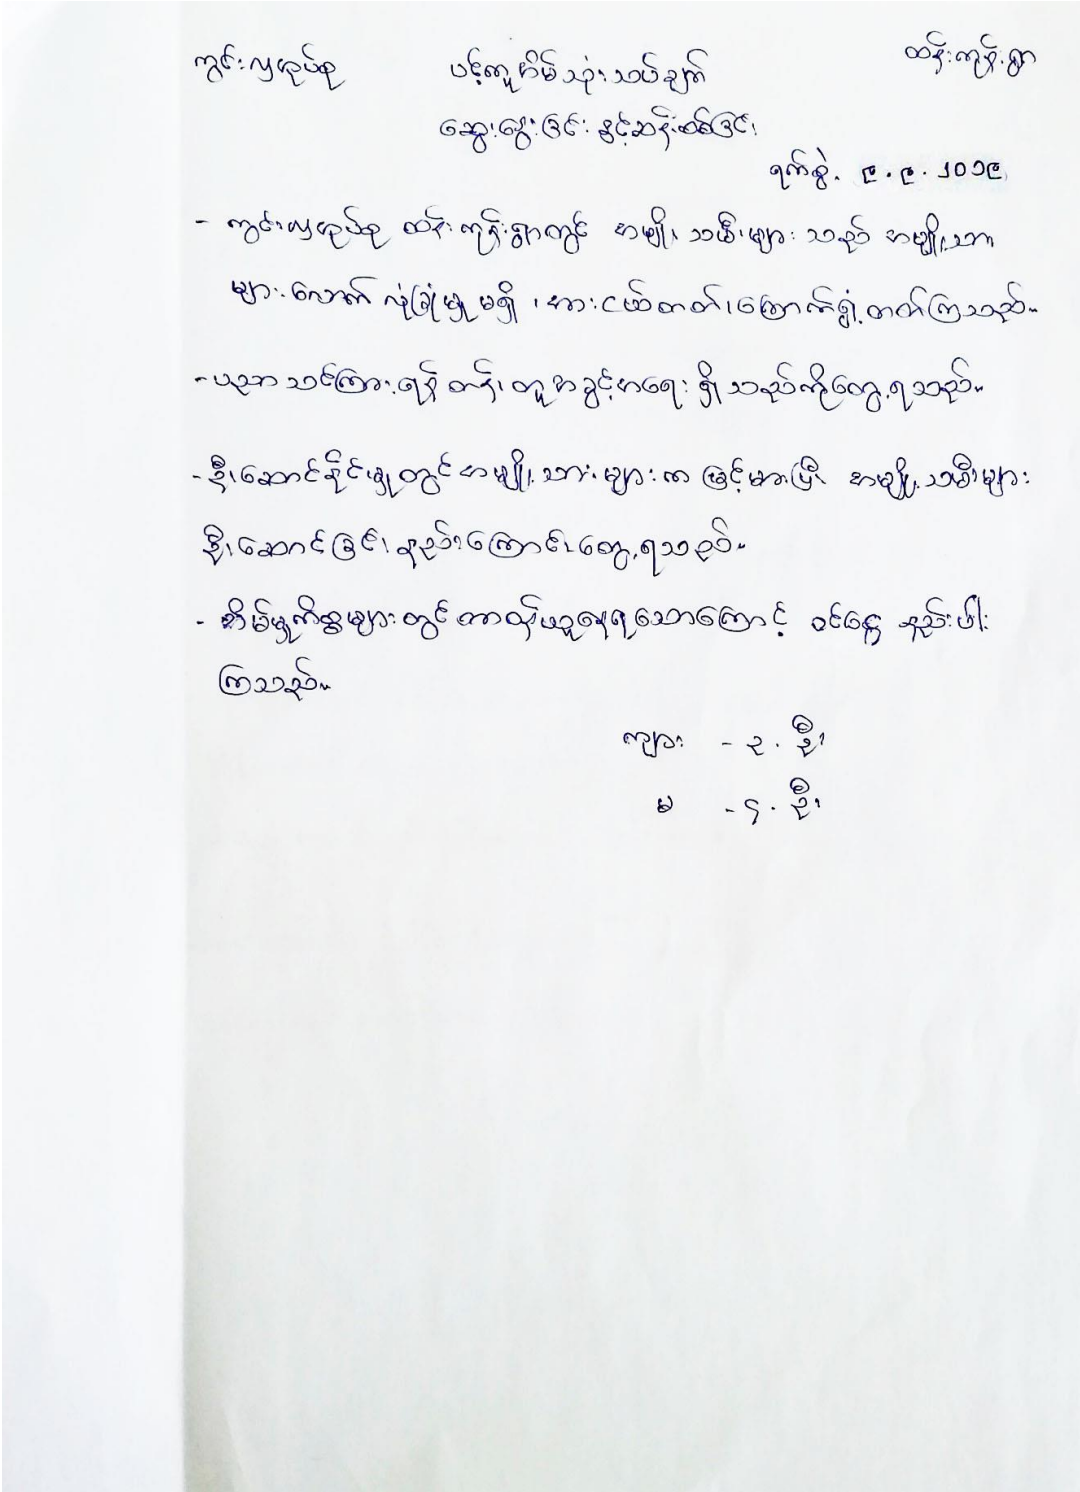 ကွင်းလှအုပ်စု ပင့်ကူအိမ်သုံးသပ်ချက် ထန်းကုန်းရွာ
ဆွေးနွေးခြင်း နှင့်ဆန်းစစ်ခြင်း
ရက်စွဲ၊ ၉.၉.၂၀၁၉
- ကွင်းလှအုပ်စု ထန်းကုန်းရွာတွင် အမျိုးသမီးများ သည် အမျိုးသား
များလောက် လုံခြုံမှု မရှိ၊ အားငယ်တတ်၊ ကြောက်ရွံ့တတ်ကြသည်။
- ပညာသင်ကြားရန် တန်းတူအခွင့်အရေး ရှိသည်ကိုတွေ့ရသည်။
- ဦးဆောင်နိုင်မှုတွင် အမျိုးသားများက မြင့်မားပြီး အမျိုးသမီးများ
ဦးဆောင်ခြင်း နည်းကြောင်းတွေ့ရသည်။
- အိမ်မှုကိစ္စများတွင် တာဝန်ယူနေရသောကြောင့် ဝင်ငွေ နည်းပါး
ကြသည်။
ကျား - ၃. ဦး
မ - ၄. ဦး